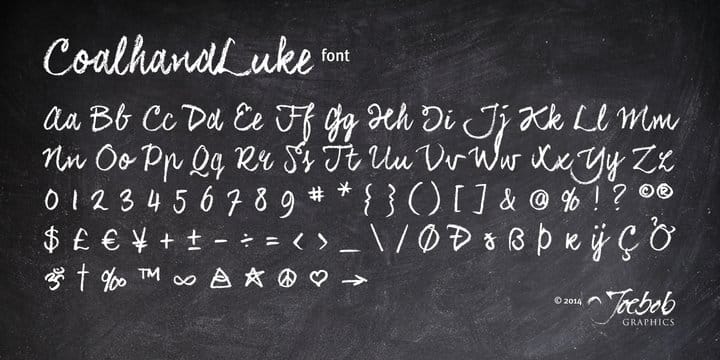 CoalhandLuke font
Aa Bb Cc Dd Ee Ff Gg Hh Ii Jj Kk Ll Mm
Nn Oo Pp Qq Rr Ss Tt Uu Vv Ww Xx Yy Zz
0 1 2 3 4 5 6 7 8 9 # * { } ( ) [ ] & @ % ! ? © ®
$ £ € ¥ + ± - ÷ = < > _ \ / Ø Ð ß þ ÿ Ç
ॐ † ‰ ™ ∞ ☆ ☮ ♡ →
© 2014 Joebob
GRAPHICS